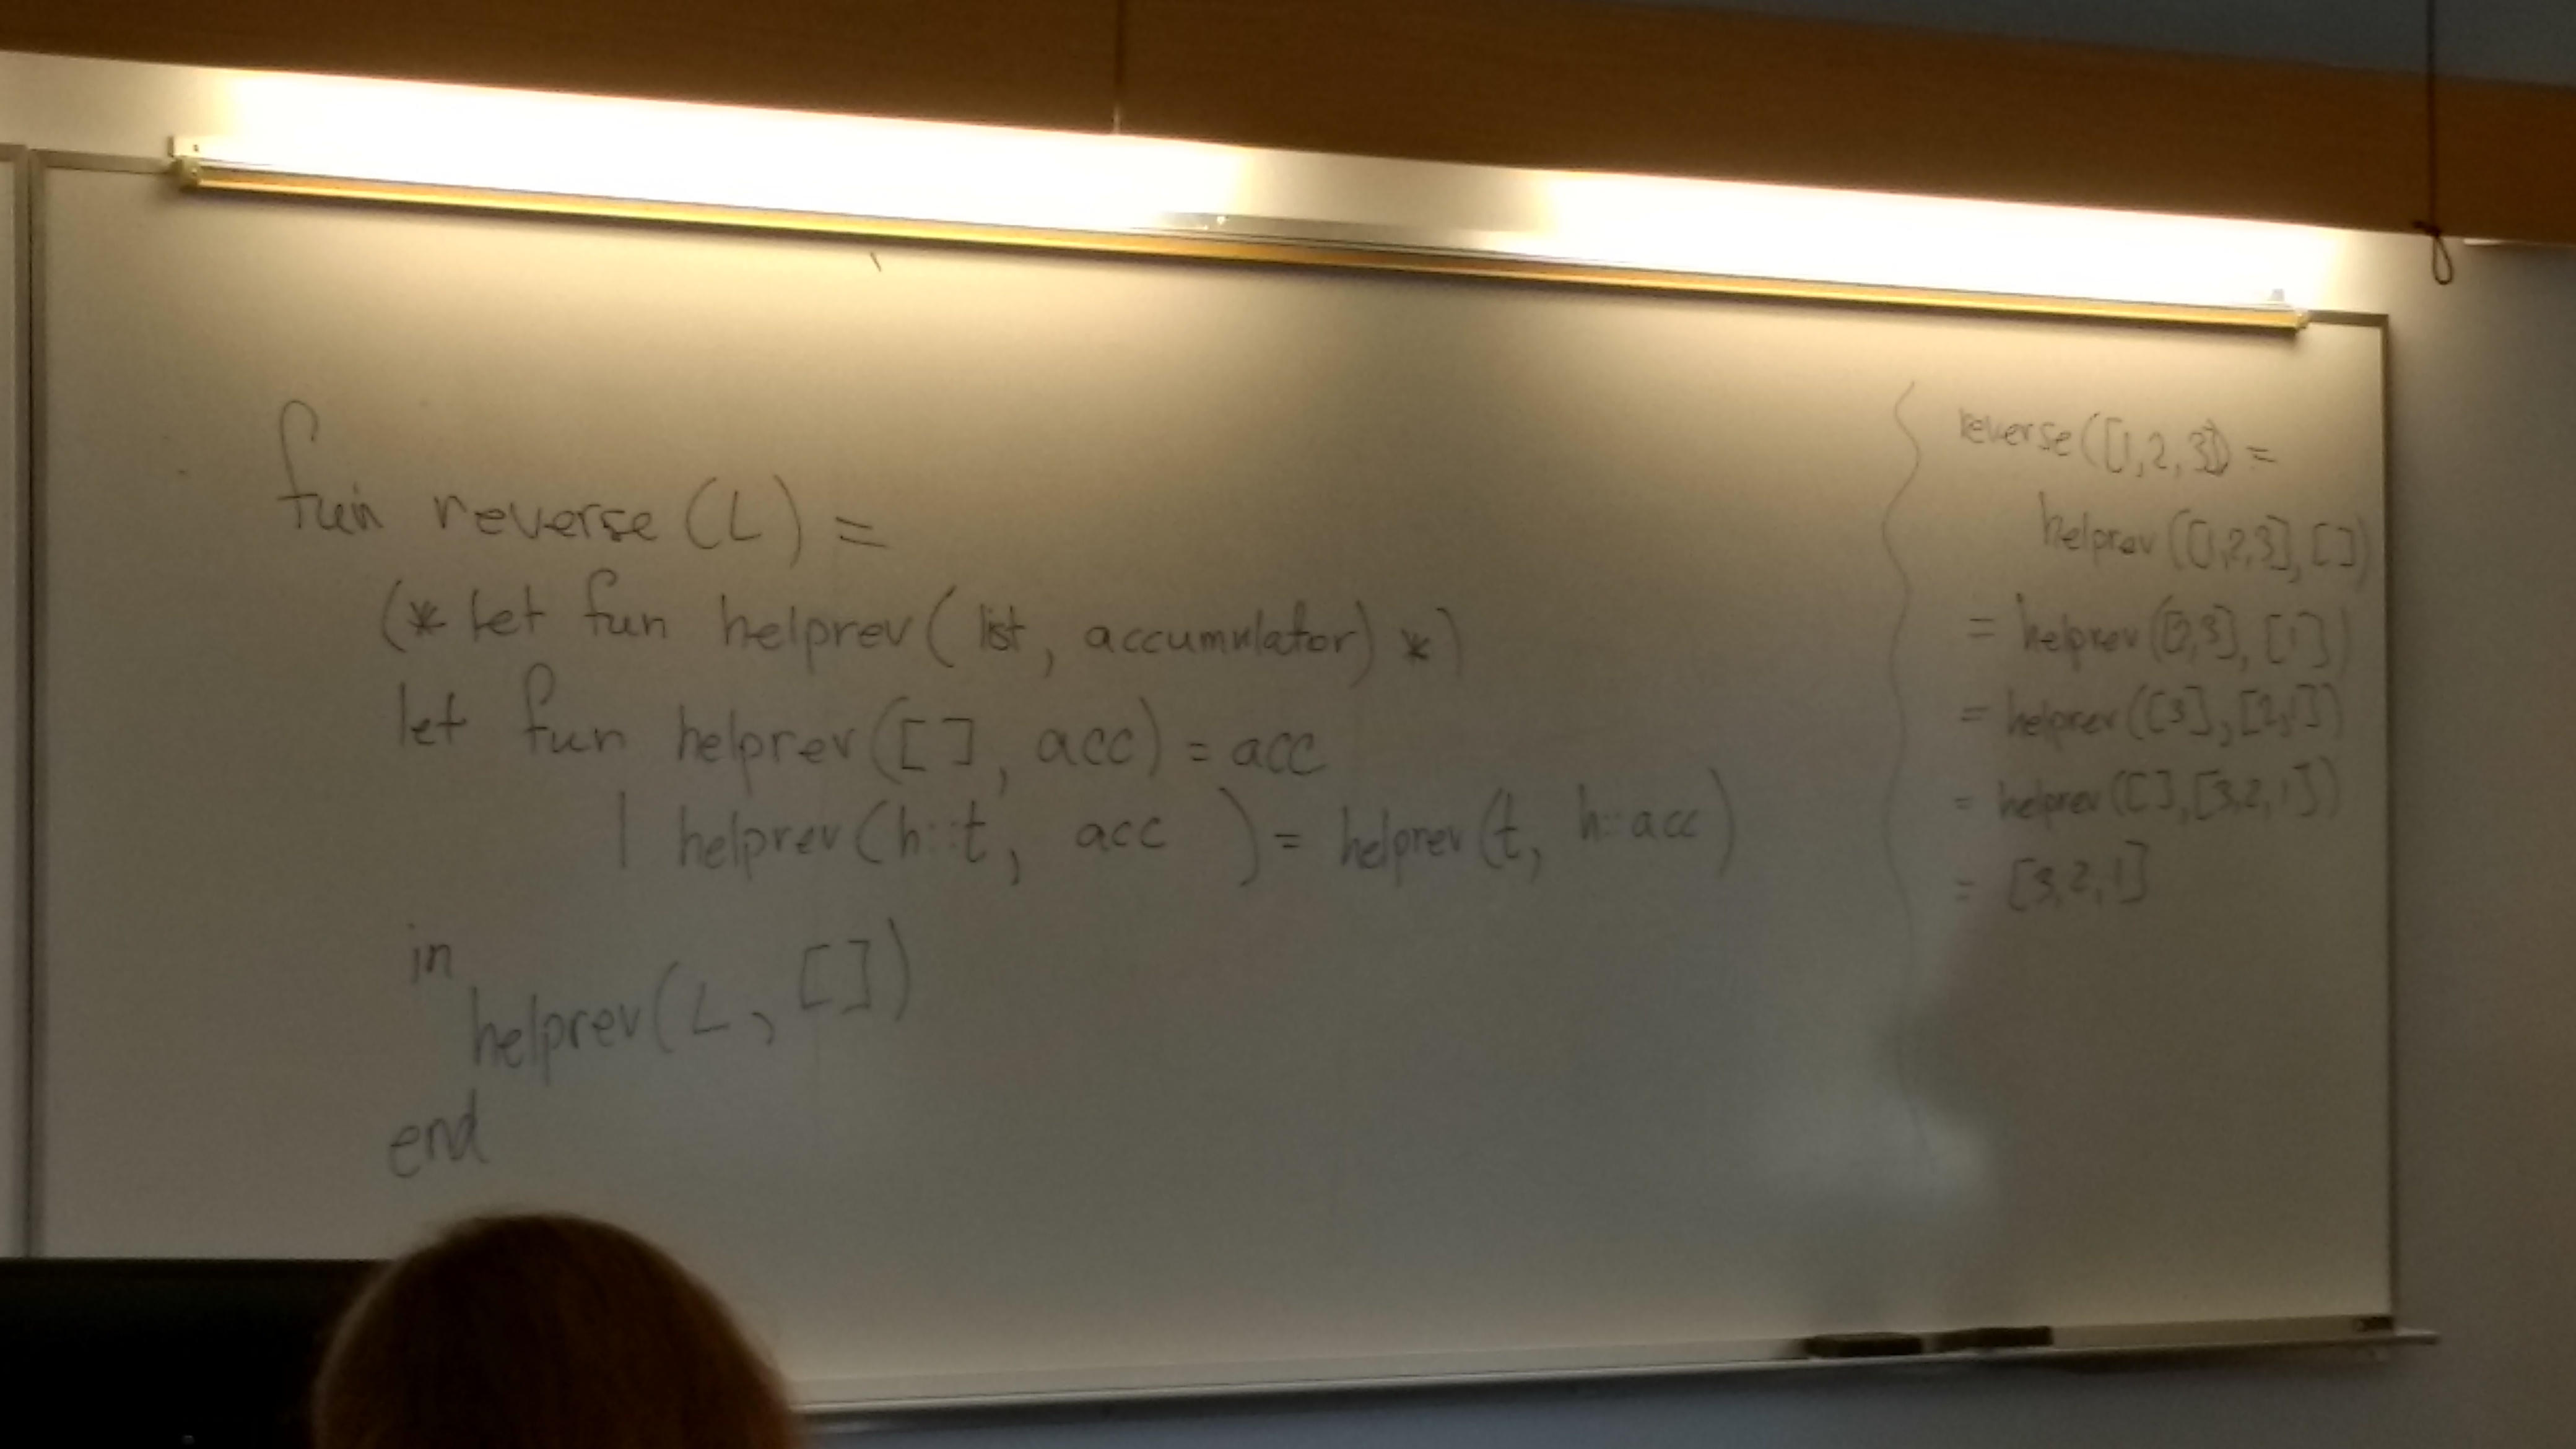 fun reverse (L) =
(* let fun helprev ( list, accumulator) *)
let fun helprev ([], acc) = acc
| helprev (h::t, acc ) = helprev (t, h::acc)
in
helprev (L, [])
end
reverse ([1,2,3]) =
helprev ([1,2,3], [])
= helprev ([2,3], [1])
= helprev ([3], [2,1])
= helprev ([], [3,2,1])
= [3,2,1]